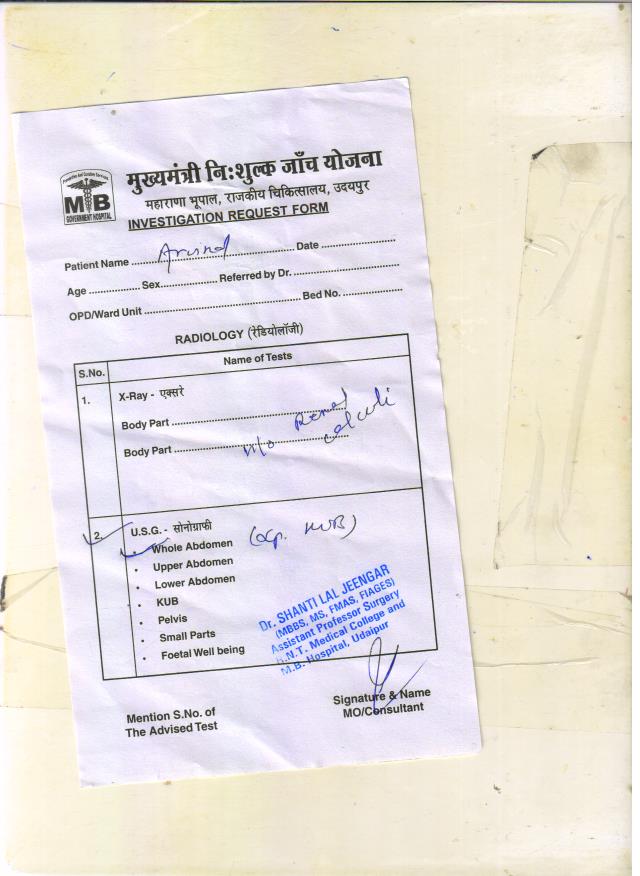 मुख्यमंत्री निःशुल्क जाँच योजना
महाराणा भूपाल, राजकीय चिकित्सालय, उदयपुर
INVESTIGATION REQUEST FORM
Promotive And Curative Services
MB
GOVERNMENT HOSPITAL
Patient Name .............................. Date ..............................
Age .............. Sex................. Referred by Dr. ..............................
OPD/Ward Unit .............................. Bed No. ..................
RADIOLOGY (रेडियोलॉजी)
S.No. Name of Tests
1. X-Ray - एक्सरे
Body Part .............................. Renal
Body Part .............................. H/o calculi
2. U.S.G. - सोनोग्राफी
• Whole Abdomen (esp. KUB)
• Upper Abdomen
• Lower Abdomen
• KUB
• Pelvis
• Small Parts
• Foetal Well being
Dr. SHANTI LAL JEENGAR
(MBBS, MS, FMAS, FIAGES)
Assistant Professor Surgery
R.N.T. Medical College and
M.B. Hospital, Udaipur
Mention S.No. of
The Advised Test
Signature & Name
MO/Consultant